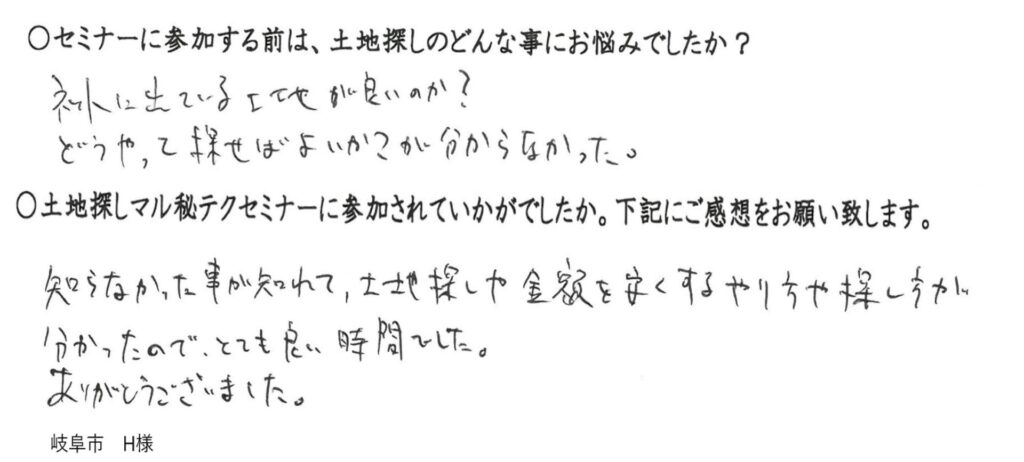 〇セミナーに参加する前は、土地探しのどんな事にお悩みでしたか？
ネットに出ている土地が良いのか？
どうやって探せばよいか？が分からなかった。
〇土地探しマル秘テクセミナーに参加されていかがでしたか。下記にご感想をお願い致します。
知らなかった事が知れて、土地探しや金額を安くするやり方や探し方が
分かったので、とても良い時間でした。
ありがとうございました。
岐阜市　H様